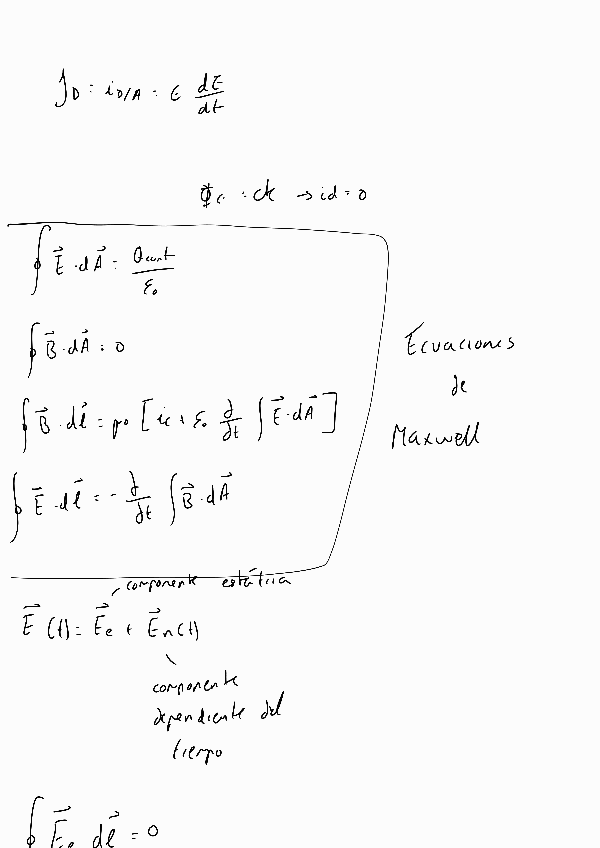 J_D = i_D/A = ε dE/dt
Φ_E = cte → id = 0
∮ E⃗ · dA⃗ = Q_enc/ε₀
∮ B⃗ · dA⃗ = 0
∮ B⃗ · dl⃗ = μ₀ [ic + ε₀ ∂/∂t ∫ E⃗ · dA⃗]
∮ E⃗ · dl⃗ = - ∂/∂t ∫ B⃗ · dA⃗
Ecuaciones
de
Maxwell
componente estática
E⃗(t) = E⃗e + E⃗n(t)
componente
dependiente del
tiempo
∮ E⃗e dl⃗ = 0